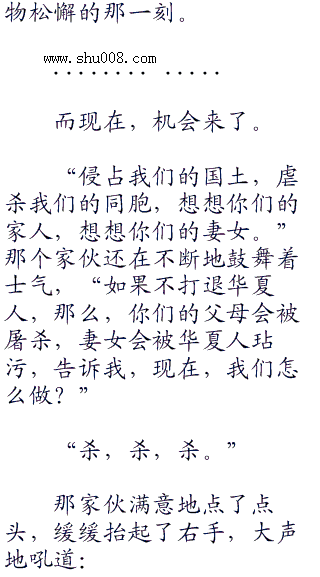 物松懈的那一刻。
www.shu008.com
........ .....
而现在，机会来了。
“侵占我们的国土，虐
杀我们的同胞，想想你们的
家人，想想你们的妻女。”
那个家伙还在不断地鼓舞着
士气，“如果不打退华夏
人，那么，你们的父母会被
屠杀，妻女会被华夏人玷
污，告诉我，现在，我们怎
么做？”
“杀，杀，杀。”
那家伙满意地点了点
头，缓缓抬起了右手，大声
地吼道：